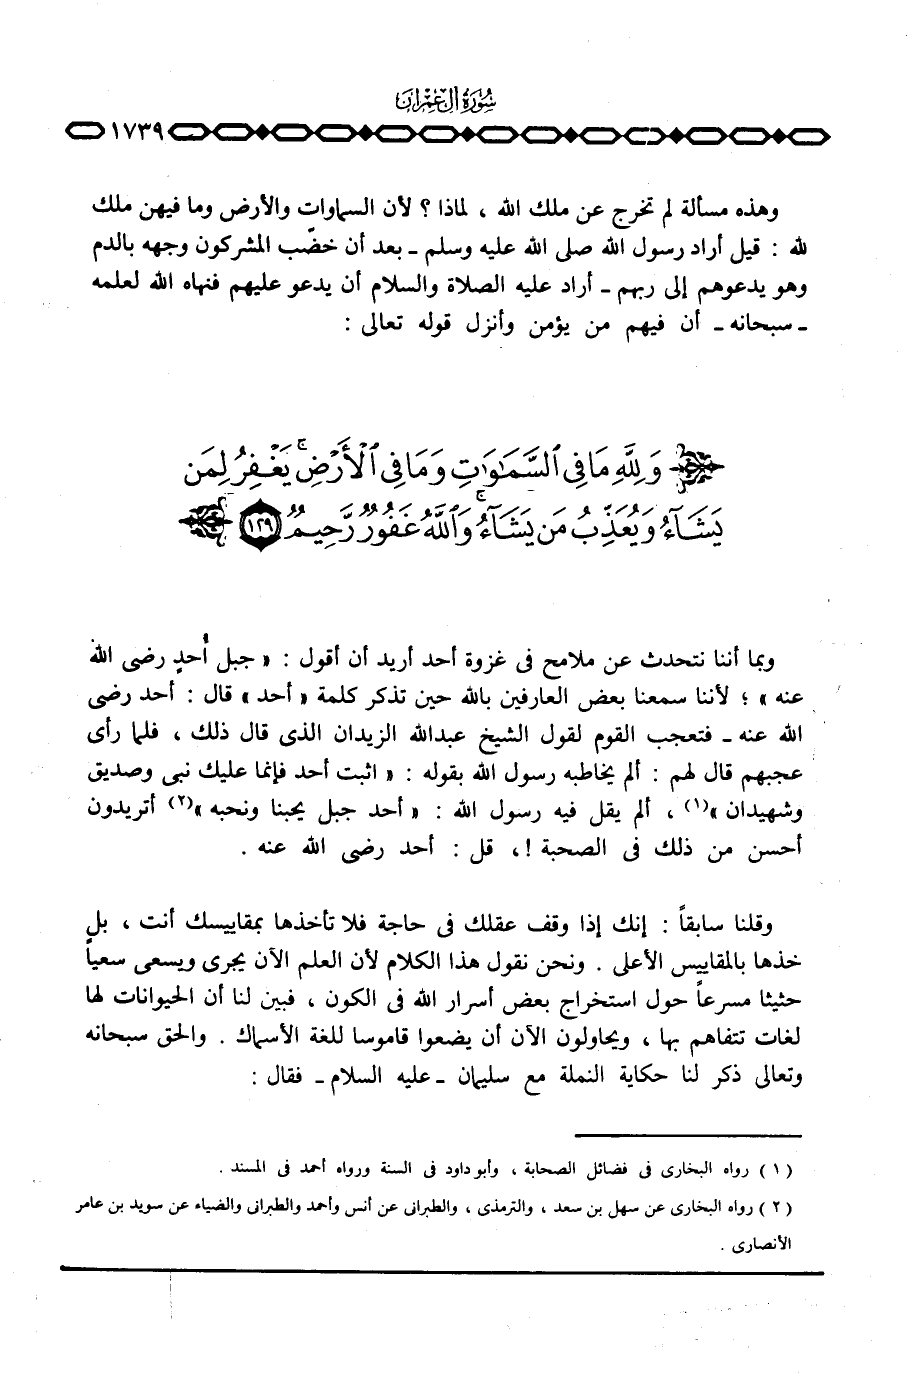 سُورَةُ آلِ عِمْرَانَ
١٧٣٩
وهذه مسألة لم تخرج عن ملك الله ، لماذا ؟ لأن السماوات والأرض وما فيهن ملك
لله : قيل أراد رسول الله صلى الله عليه وسلم ـ بعد أن خضّب المشركون وجهه بالدم
وهو يدعوهم إلى ربهم ـ أراد عليه الصلاة والسلام أن يدعو عليهم فنهاه الله لعلمه
ـ سبحانه ـ أن فيهم من يؤمن وأنزل قوله تعالى :
وَلِلَّهِ مَا فِى ٱلسَّمَٰوَٰتِ وَمَا فِى ٱلْأَرْضِ ۚ يَغْفِرُ لِمَن
يَشَآءُ وَيُعَذِّبُ مَن يَشَآءُ ۚ وَٱللَّهُ غَفُورٌ رَّحِيمٌ ١٢٩
وبما أننا نتحدث عن ملامح فى غزوة أحد أريد أن أقول : « جبل أُحدٍ رضى الله
عنه » ؛ لأننا سمعنا بعض العارفين بالله حين تذكر كلمة « أحد » قال : أحد رضى
الله عنه ـ فتعجب القوم لقول الشيخ عبدالله الزيدان الذى قال ذلك ، فلما رأى
عجبهم قال لهم : ألم يخاطبه رسول الله بقوله : « اثبت أحد فإنما عليك نبى وصديق
وشهيدان »(١) ، ألم يقل فيه رسول الله : « أحد جبل يحبنا ونحبه »(٢) أتريدون
أحسن من ذلك فى الصحبة !، قل : أحد رضى الله عنه .
وقلنا سابقاً : إنك إذا وقف عقلك فى حاجة فلا تأخذها بمقاييسك أنت ، بل
خذها بالمقاييس الأعلى . ونحن نقول هذا الكلام لأن العلم الآن يجرى ويسعى سعياً
حثيثا مسرعاً حول استخراج بعض أسرار الله فى الكون ، فبين لنا أن الحيوانات لها
لغات تتفاهم بها ، ويحاولون الآن أن يضعوا قاموسا للغة الأسماك . والحق سبحانه
وتعالى ذكر لنا حكاية النملة مع سليمان ـ عليه السلام ـ فقال :
( ١ ) رواه البخارى فى فضائل الصحابة ، وأبو داود فى السنة ورواه أحمد فى المسند .
( ٢ ) رواه البخارى عن سهل بن سعد ، والترمذى ، والطبرانى عن أنس وأحمد والطبرانى والضياء عن سويد بن عامر
الأنصارى .